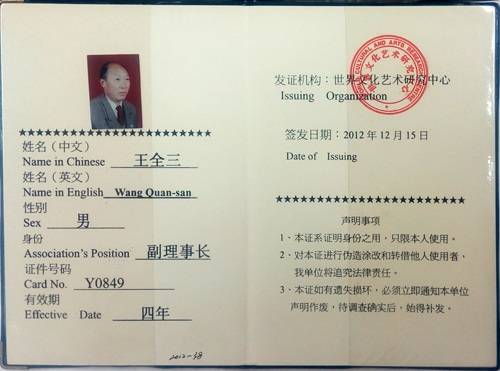 姓名（中文）
Name in Chinese 王全三
姓名（英文）
Name in English Wang Quan-san
性别
Sex 男
身份
Association's Position 副理事长
证件号码
Card No. Y0849
有效期
Effective Date 四年
2012-48
发证机构：世界文化艺术研究中心
Issuing Organization
签发日期：2012年12月15日
Date of Issuing
声明事项
1、本证系证明身份之用，只限本人使用。
2、对本证进行伪造涂改和转借他人使用者，
我单位将追究法律责任。
3、本证如有遗失损坏，必须立即通知本单位
声明作废，待调查确实后，始得补发。